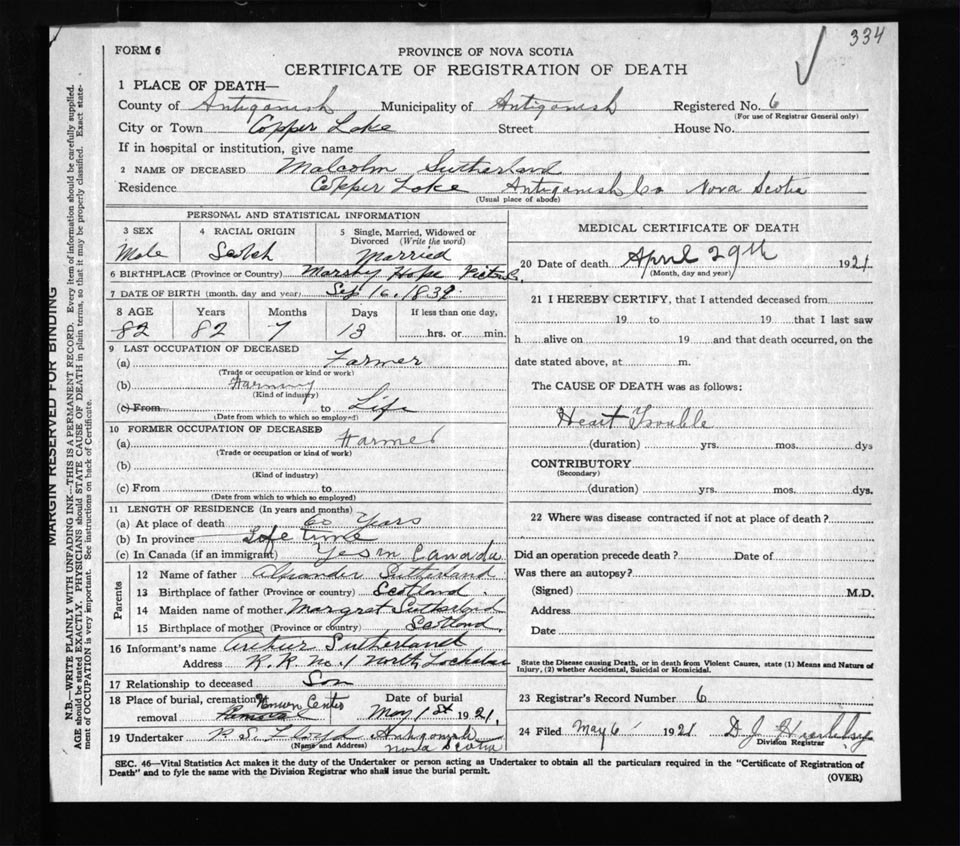 334
FORM 6
PROVINCE OF NOVA SCOTIA
CERTIFICATE OF REGISTRATION OF DEATH
1 PLACE OF DEATH—
County of Antigonish Municipality of Antigonish Registered No. 6
(For use of Registrar General only)
City or Town Copper Lake Street House No.
If in hospital or institution, give name
2 NAME OF DECEASED Malcolm Sutherland
Residence Copper Lake Antigonish Co Nova Scotia
(Usual place of abode)
PERSONAL AND STATISTICAL INFORMATION
3 SEX 4 RACIAL ORIGIN 5 Single, Married, Widowed or Divorced (Write the word)
Male Scotch Married
6 BIRTHPLACE (Province or Country) Marshy Hope
7 DATE OF BIRTH (month, day and year) Sep 16. 1839
8 AGE Years Months Days If less than one day,
82 82 7 13 hrs. or min.
9 LAST OCCUPATION OF DECEASED
(a) Farmer
(Trade or occupation or kind or work)
(b) Farming
(Kind of industry)
(c) From to Life
(Date from which to which so employed)
10 FORMER OCCUPATION OF DECEASED
(a) Farmer
(Trade or occupation or kind of work)
(b)
(Kind of industry)
(c) From to
(Date from which to which so employed)
11 LENGTH OF RESIDENCE (In years and months)
(a) At place of death 60 Years
(b) In province Life time
(c) In Canada (if an immigrant) Yes in Canada
Parents
12 Name of father Alexander Sutherland
13 Birthplace of father (Province or country) Scotland.
14 Maiden name of mother Margret Sutherland
15 Birthplace of mother (Province or country) Scotland.
16 Informant's name Arthur Sutherland
Address R. R. No. 1 North Lochaber
17 Relationship to deceased Son
18 Place of burial, cremation Date of burial
removal May 1st 1921.
19 Undertaker Antigonish
(Name and Address) Nova Scotia
MEDICAL CERTIFICATE OF DEATH
20 Date of death April 29th 1921
(Month, day and year)
21 I HEREBY CERTIFY, that I attended deceased from
19 to 19 that I last saw
h alive on 19 and that death occurred, on the
date stated above, at m.
The CAUSE OF DEATH was as follows:
Heart Trouble
(duration) yrs. mos. dys
CONTRIBUTORY
(Secondary)
(duration) yrs. mos. dys.
22 Where was disease contracted if not at place of death?
Did an operation precede death? Date of
Was there an autopsy?
(Signed) M.D.
Address
Date
State the Disease causing Death, or in death from Violent Causes, state (1) Means and Nature of
Injury, (2) whether Accidental, Suicidal or Homicidal.
23 Registrar's Record Number 6
24 Filed May 6 1921 D. J.
Division Registrar
SEC. 46—Vital Statistics Act makes it the duty of the Undertaker or person acting as Undertaker to obtain all the particulars required in the "Certificate of Registration of
Death" and to fyle the same with the Division Registrar who shall issue the burial permit.
(OVER)
MARGIN RESERVED FOR BINDING
N.B.—WRITE PLAINLY WITH UNFADING INK—THIS IS A PERMANENT RECORD. Every item of information should be carefully supplied.
AGE should be stated EXACTLY. PHYSICIANS should STATE CAUSE OF DEATH in plain terms, so that it may be properly classified. Exact state-
ment of OCCUPATION is very important. See instructions on back of Certificate.